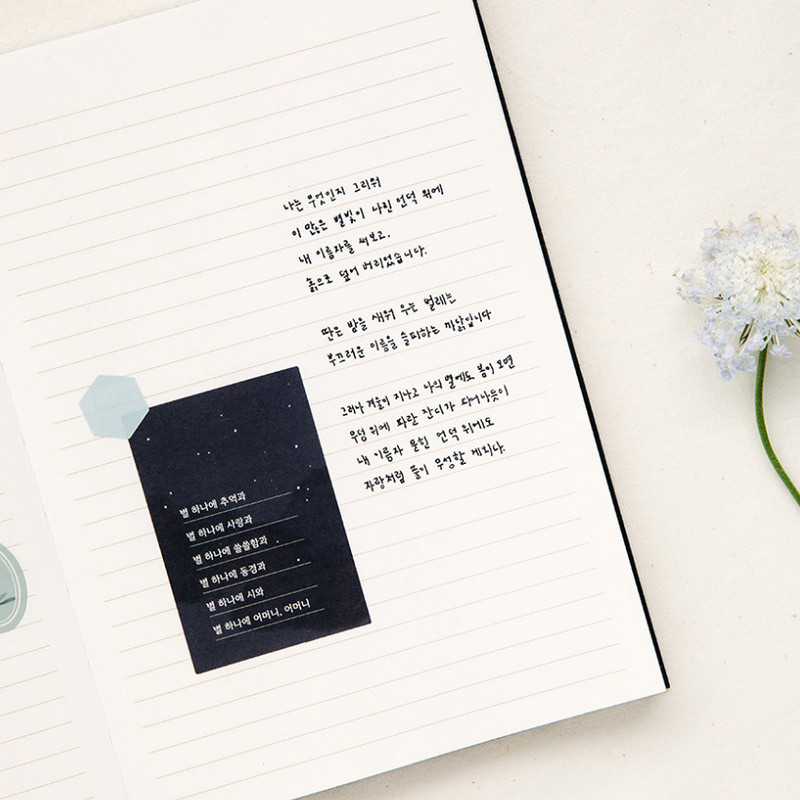 나는 무엇인지 그리워
이 많은 별빛이 나린 언덕 위에
내 이름자를 써보고,
흙으로 덮어 버리었습니다.
딴은 밤을 새워 우는 벌레는
부끄러운 이름을 슬퍼하는 까닭입니다
그러나 겨울이 지나고 나의 별에도 봄이 오면
무덤 위에 파란 잔디가 피어나듯이
내 이름자 묻힌 언덕 위에도
자랑처럼 풀이 무성할 게외다.
별 하나에 추억과
별 하나에 사랑과
별 하나에 쓸쓸함과
별 하나에 동경과
별 하나에 시와
별 하나에 어머니, 어머니